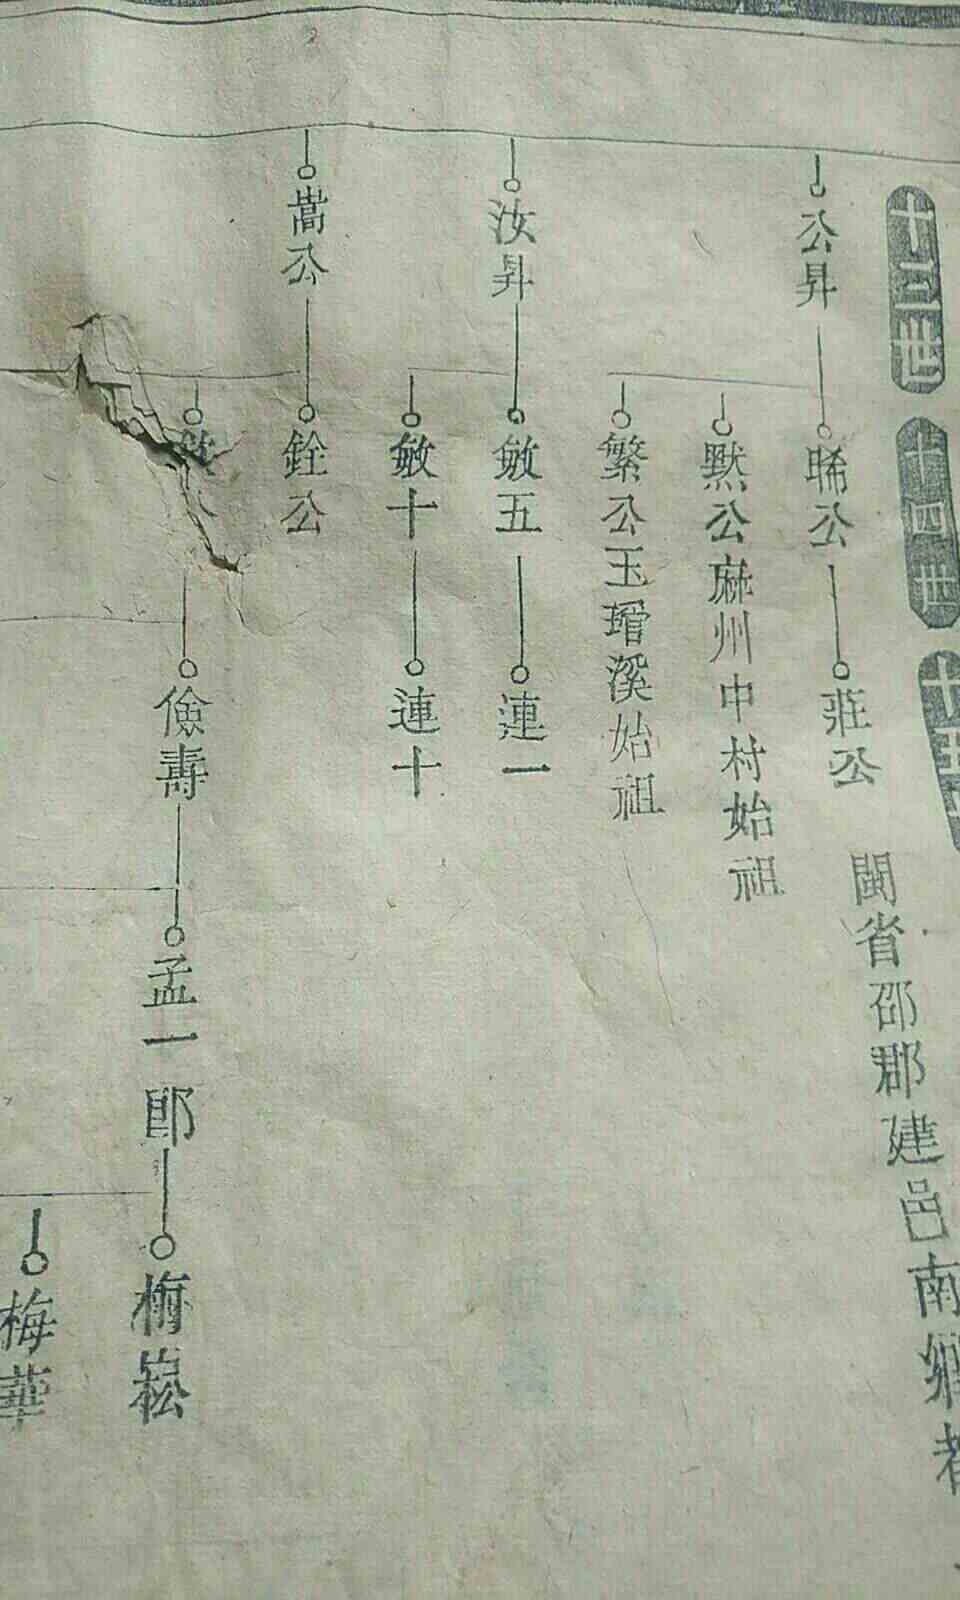 十三世
十四世
十五
公昇
晞公
莊公
閩省邵郡建邑南鄉
默公麻州中村始祖
繁公玉瑨溪始祖
汝昇
敏五
連一
敏十
連十
嵩公
銓公
儉壽
孟一郎
梅崧
梅華